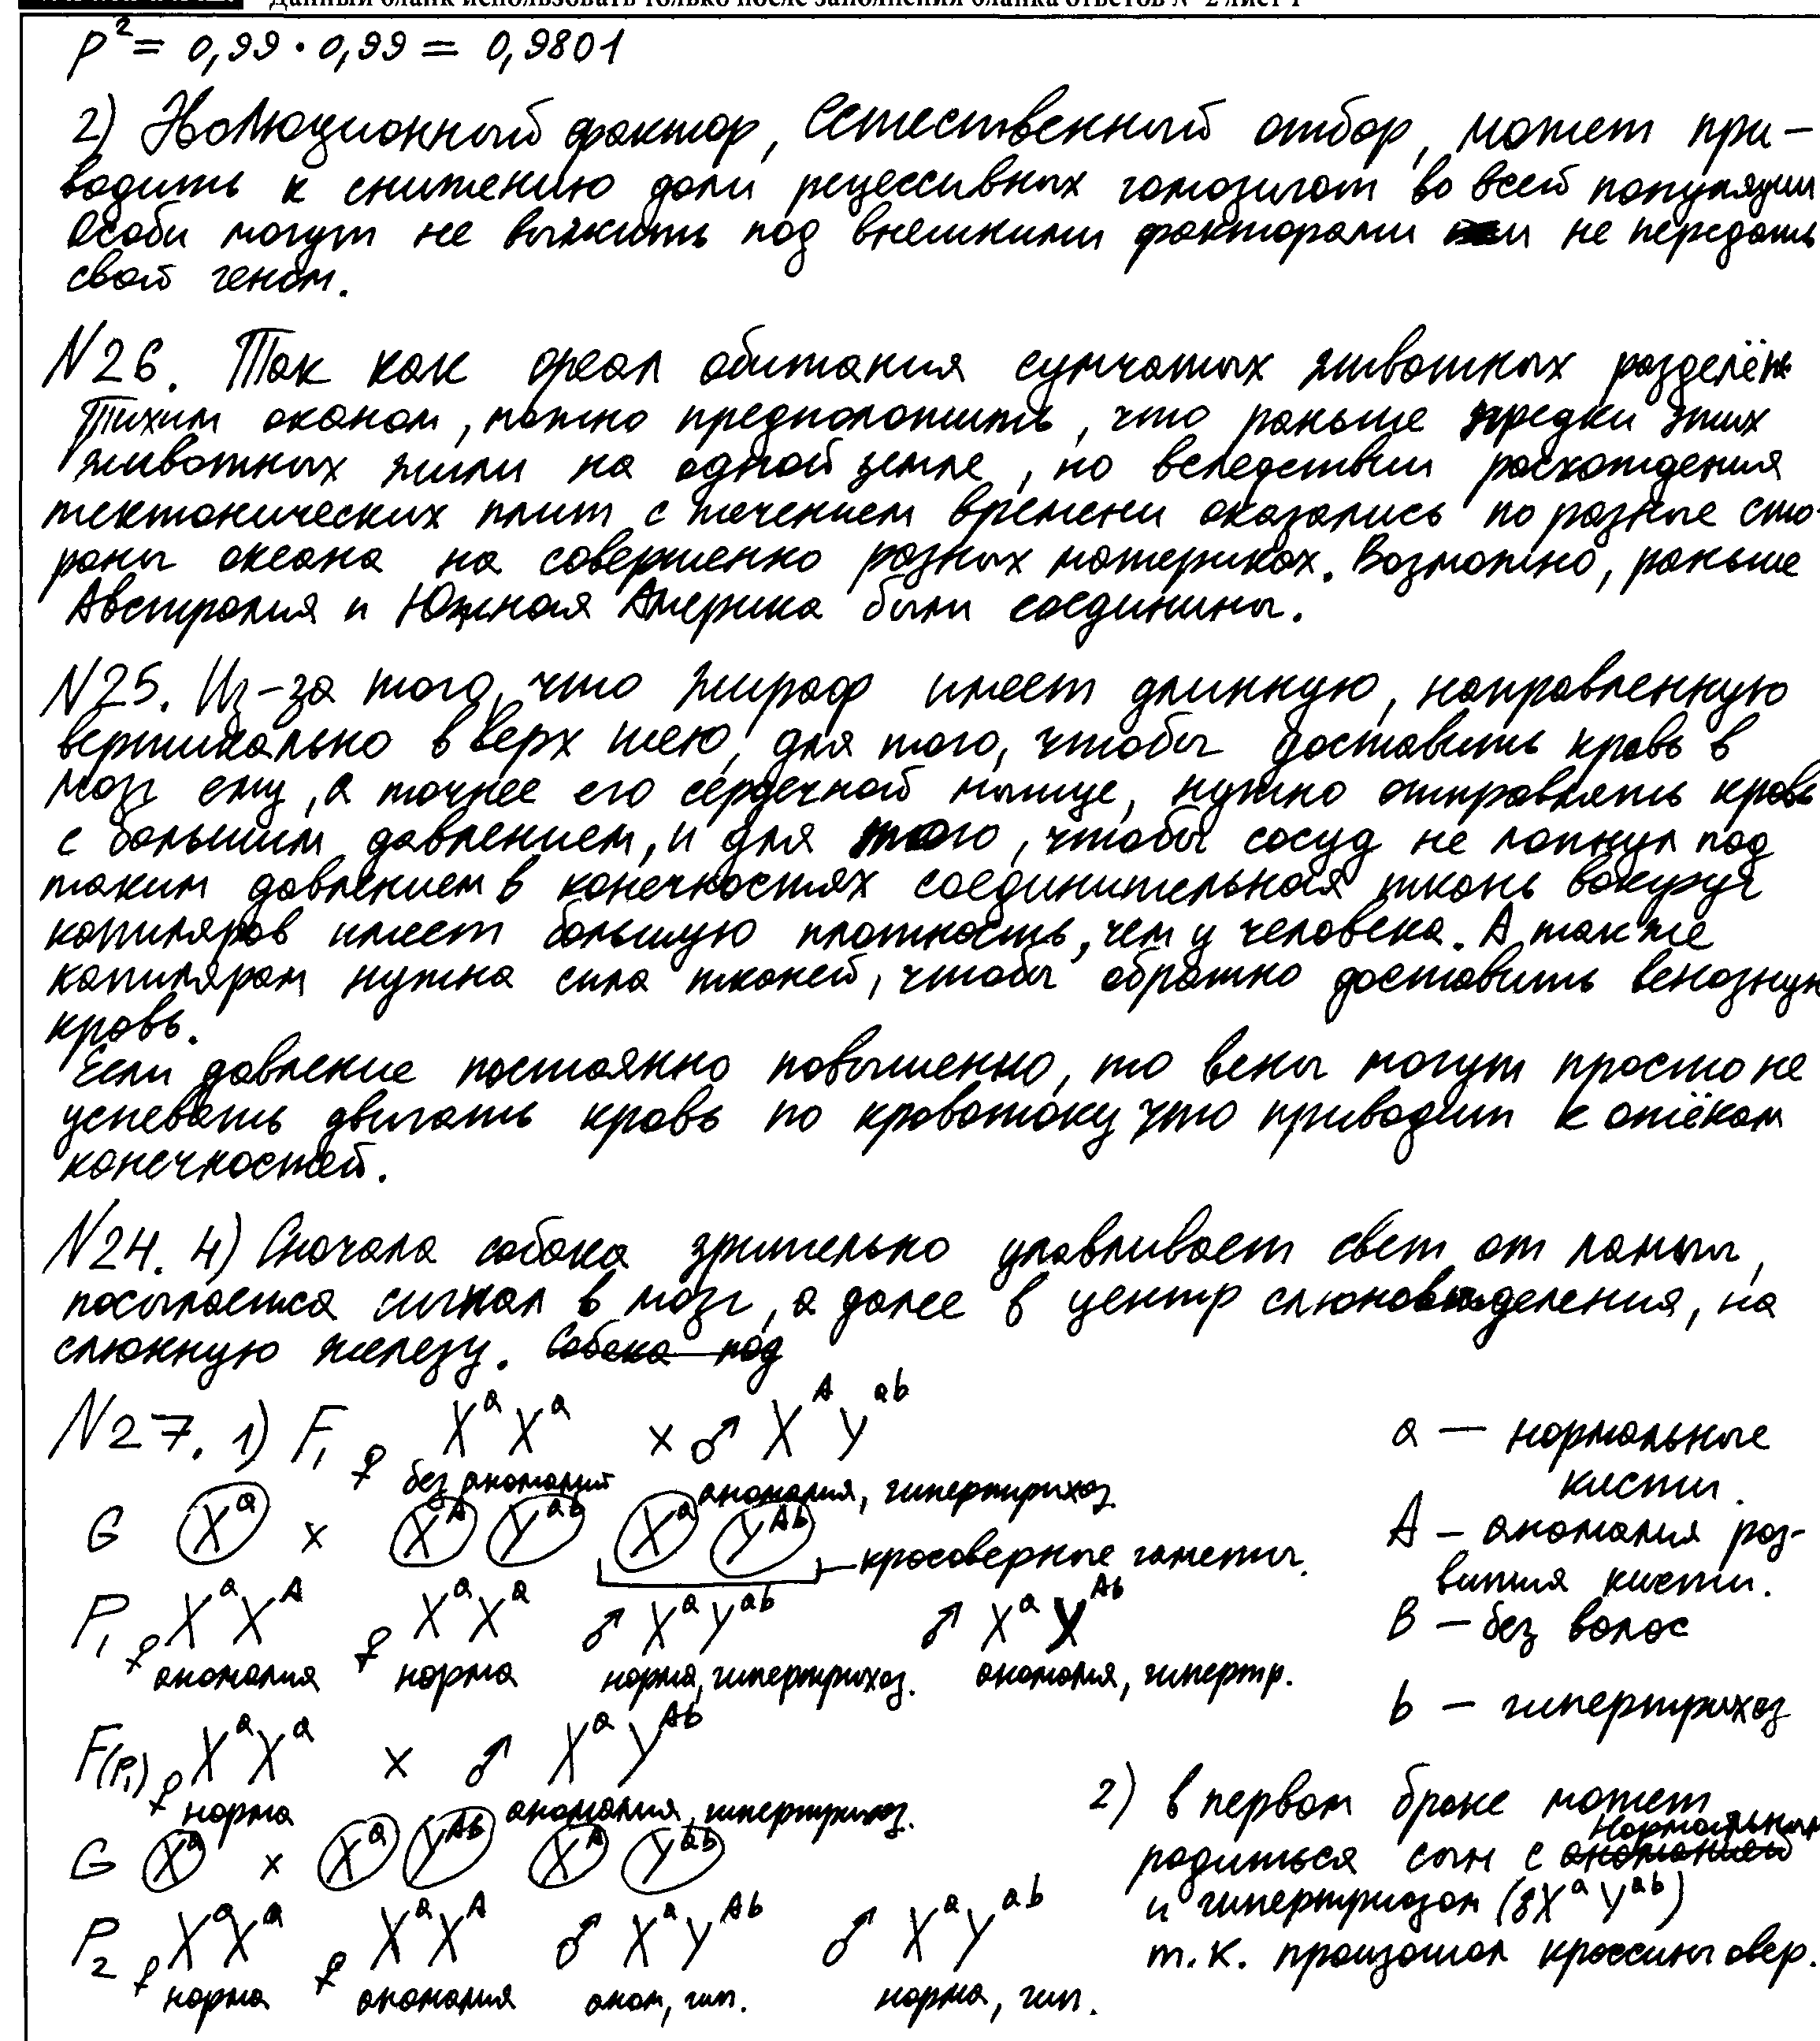 Данный бланк использовать только после заполнения бланка ответов № 2 лист 1
p² = 0,99 · 0,99 = 0,9801
2) Эволюционный фактор, Естественный отбор, может при-
водить к снижению доли рецессивных гомозигот во всей популяции
Особи могут не выжить под внешними факторами и не передать
свой геном.
N26. Так как ареал обитания сумчатых животных разделён
Тихим оканом, можно предположить, что раньше предки этих
животных жили на одной земле, но вследствии расхождения
тектонических плит с течением времени оказались по разные сто-
роны океана на совершенно разных материках. Возможно, раньше
Австралия и Южная Америка были соединины.
N25. Из-за того, что жираф имеет длинную, направленную
вертикально вверх шею, для того, чтобы доставить кровь в
мозг ему, а точнее его сердечной мышце, нужно отправлять кровь
с большим давлением, и для того, чтобы сосуд не лопнул под
таким давлением в конечностях соединительная ткань вокруг
капиляров имеет большую плотность, чем у человека. А также
капилярам нужна сила тканей, чтобы обратно доставить венозную
кровь.
Если давление постоянно повышенно, то вены могут просто не
успевать двигать кровь по кровотоку что приводит к отёкам
конечностей.
N24. 4) Сначала собака зрительно улавливает свет от лампы,
посылается сигнал в мозг, а далее в центр слюновыделения, на
слюнную железу. Собака под
N27. 1) F₁ ♀ XᵃXᵃ × ♂ XᴬYᵃᵇ
без аномалий аномалия, гипертрихоз
G Xᵃ × Xᴬ Yᵃᵇ Xᵃ Yᴬᵇ
кросоверные гаметы.
P₁ ♀ XᵃXᴬ ♀ XᵃXᵃ ♂ XᵃYᵃᵇ ♂ XᵃYᴬᵇ
аномалия норма норма, гипертрихоз. аномалия, гипертр.
F(P₁) ♀ XᵃXᵃ × ♂ XᵃYᴬᵇ
норма аномалия, гипертрихоз.
G Xᵃ × Xᵃ Yᴬᵇ Xᴬ Yᵃᵇ
P₂ ♀ XᵃXᵃ ♀ XᵃXᴬ ♂ XᵃYᴬᵇ ♂ XᵃYᵃᵇ
норма аномалия аном, гип. норма, гип.
a — нормальные
кисти.
A — аномалия раз-
вития кисти.
B — без волос
b — гипертрихоз
2) в первом браке может
родиться сын с аномалией нормальным
и гипертриозом (♂XᵃYᵃᵇ)
т.к. произошол кроссинговер.